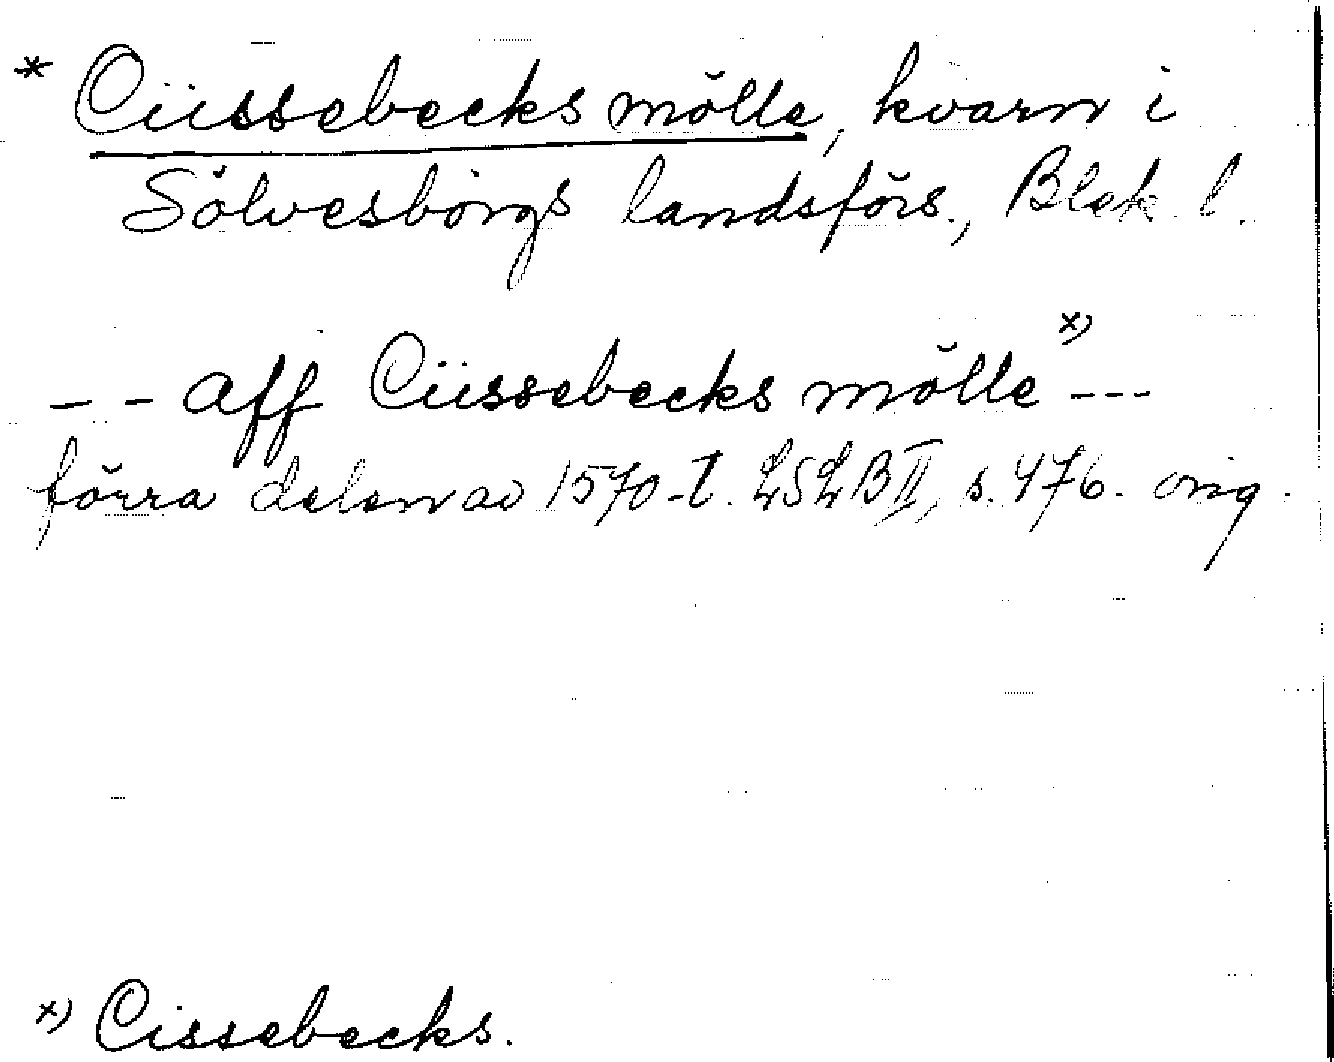 * Ciissebecks mölle, kvarn i
Sölvesborgs landsförs., Blek. l.
-- aff Ciissebecks mölle x) ---
förra delen av 1570-t. LSLB II, s. 476. orig.
x) Cissebecks.